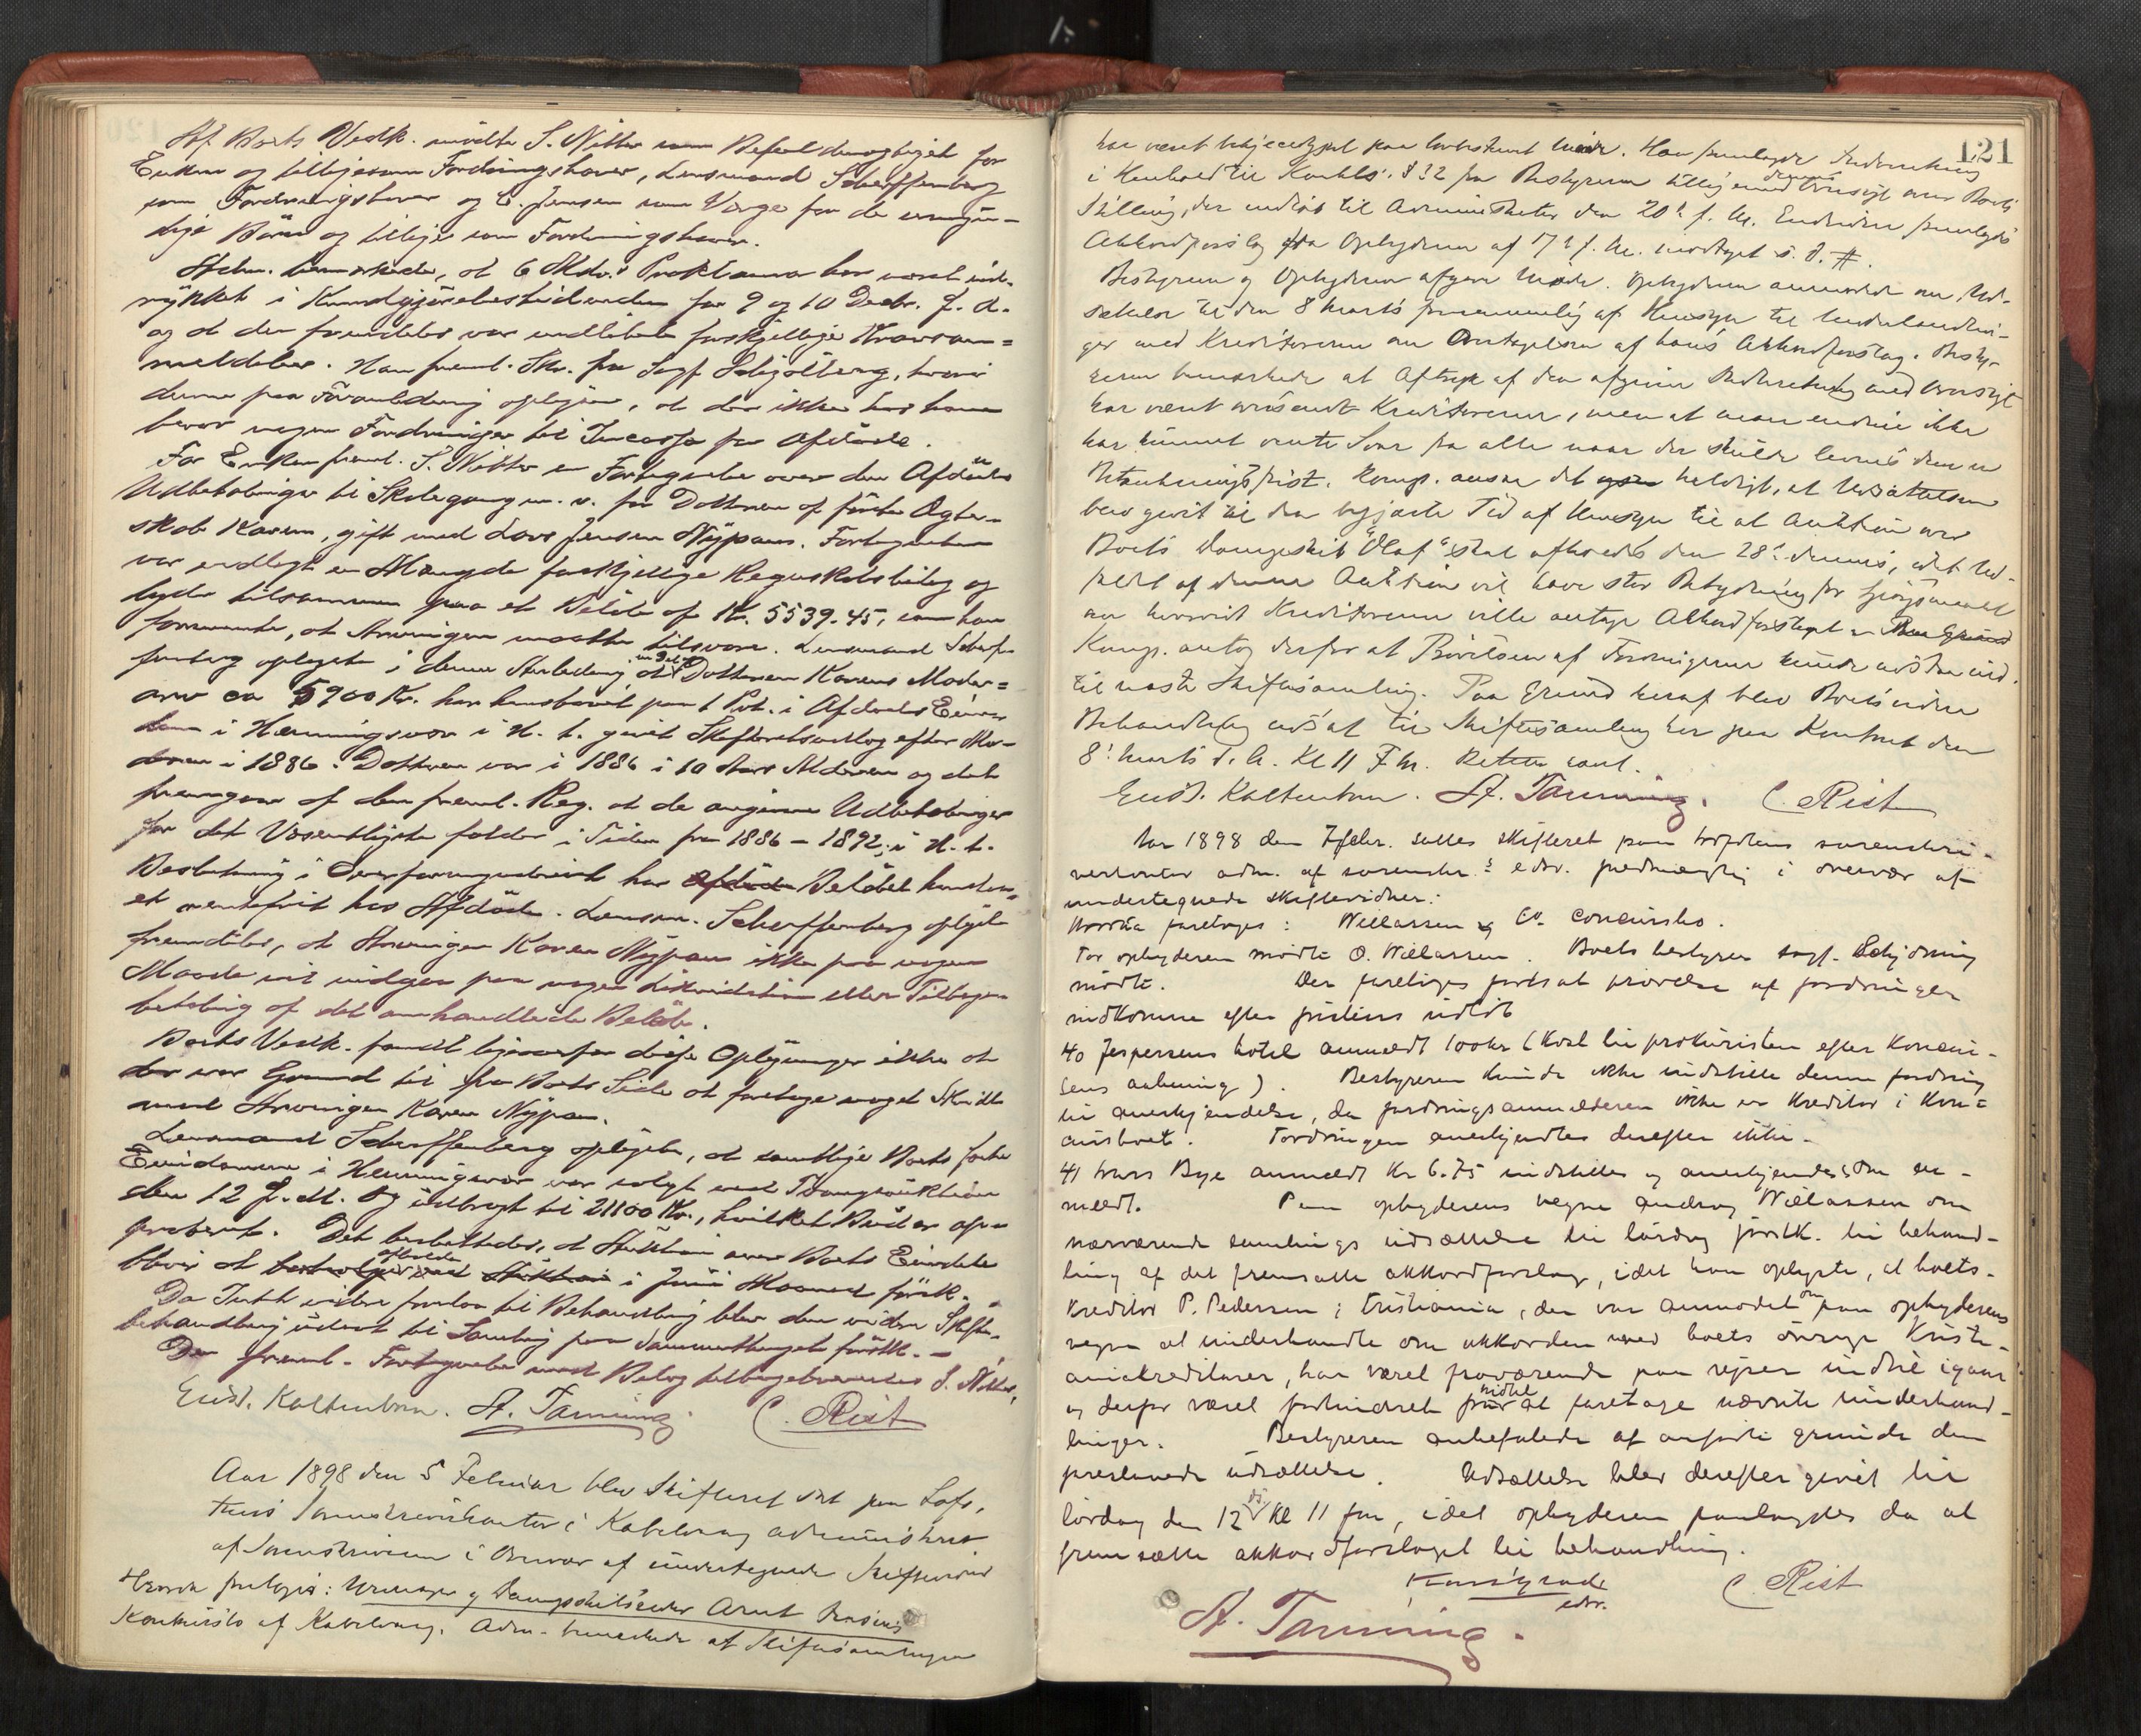 Af Boets Vedk. mødte S. Nitter som Befuldmægtiget for
Enken og tilligesom Fordringshaver, Lensmand Scheffenberg
som Fordringshaver og C. Jensen som Værge for de umyn-
dige Børn og tillige som Fordringshaver.
Adm. bemærkede, at 6 Mdrs Proklama har været ind-
rykket i Kundgjørelsestidende for 9 og 10 Decbr. f. A.
og at der fremdeles var indløbet forskjellige Kravsan-
meldelser. Han freml. Skr. fra Sagf. Schjølberg, hvori
denne paa Foranledning oplyser, at der ikke hos ham
beror nogen Fordringer til Incasso for Afdøde.
For Enken freml. S. Nitter en Fortegnelse over den Afdødes
Udbetalinger til Skolegang m. v. for Datteren af første Ægte-
skab Karen, gift med Lars Jensen Nypan. Fortegnelsen
var vedlagt en Mængde forskjellige Regnskabsbilag og
lyder tilsammen paa et Beløb af Kr. 5539.45, som han
formente, at Arvingen maatte tilsvare. Lensmand Schef-
fenberg oplyste i denne Anledning at en Del af Datteren Karens Mødre-
arv ca 5900 Kr. har henstaaet paa 1 Pr. i Afdødes Eien-
dom i Henningsvær i H. t. givet Skifteretsudlæg efter Mo-
deren i 1886. Datteren var i 1886 i 10 Aars Alderen og det
fremgaar af den freml. Reg. at de angivne Udbetalinger
for det Væsentligste falder i Tiden fra 1886 - 1892; i H. t.
Beslutning i Overformynderiet har Afdøde Beløbet henstaa-
et rentefrit hos Afdøde. Lensm. Scheffenberg oplyste
fremdeles, at Arvingen Karen Nypan ikke paa nogen
Maade vil indgaa paa nogen Likvidation eller Tilbage-
betaling af det omhandlede Beløb.
Boets Vedk. fandt ligeoverfor disse Oplysninger ikke at
der var Grund til fra Boets Side at foretage noget Skridt
mod Arvingen Karen Nypan.
Lensmand Scheffenberg oplyste, at samtlige Boets faste
Eiendomme i Henningsvær var solgt ved Tvangsauktion
den 12 f. M. og udbragt til 21100 Kr., hvilket Bud er ap-
proberet. Det besluttedes, at Auktion over Boets Eiendele
blive at afholde i Juni Maaned førstk.
Da Intet videre forelaa til Behandling blev den videre Skifte-
behandling udsat til Samling paa Sommerthinget førstk. -
Den freml. Fortegnelse med Bilag tilbageleveredes S. Nitter.
Eust. Kaltenborn. A. Tanning. C. Rist
Aar 1898 den 5 Februar blev Skifteret sat paa Lofo-
tens Sorenskriverkontor i Kabelvaag administreret
af Sorenskriveren i Overvær af undertegnede Skiftevidner
Hvorda foretoges: Urmager og Dampskibsreder Arnt
Konkursbo af Kabelvaag. Adm. bemærkede at Skiftesamlingen
121
har været bekjendtgjort paa lovbestemt Maade. Han fremlagde Indberetning
i Henhold til Konkl. § 32 fra Bestyreren tilligemed dennes Oversigt over Boets
Stilling, der indløb til Administrator den 20de f. M. Endvidere fremlagdes
Akkordforslag fra Opbyderen af 17de f. M. modtaget s. D.
Bestyreren og Opbyderen afgav Møde. Opbyderen anmodede om Ud-
sættelse til den 8 Marts fornemmelig af Hensyn til Underhandlin-
ger med Kreditorerne om Antagelsen af hans Akkordforslag. Besty-
reren bemærkede at Aftryk af den afgivne Indberetning med Oversigt
har været oversendt Kreditorerne, men at man endnu ikke
har kunnet vente Svar fra alle naar der skulde levnes dem en
Betænkningsfrist. Komp. ansaa det heldigt, at Udsættelsen
blev givet til den begjærte Tid af Hensyn til at Auktion over
Boets Dampskib "Olaf" skal afholdes den 28de dennes, idet Ud-
faldet af denne Auktion vil have stor Betydning for Spørgsmaalet
om hvorvidt Kreditorerne ville antage Akkordforslaget.
Komp. antog derfor at Prøvelsen af Fordringerne kunde udstaa ind-
til næste Skiftesamling. Paa Grund heraf blev Boets videre
Behandling udsat til Skiftesamling her paa Kontoret den
8de Marts d. A. Kl 11 Fm. Retten hævet.
Eust. Kaltenborn. A. Tanning. C. Rist
Aar 1898 den 7 febr. sattes skifteret paa Lofotens sorenskri-
verkontor adm. af sorenskr.s edsv. fuldmægtig i overvær af
undertegnede skiftevidner:
Hvorda foretoges: Willassen & Co. concursbo.
For opbyderen mødte O. Willassen. Boets bestyrer sagf. Schjønning
mødte. Der foretoges fortsat prøvelse af fordringer
indkomne efter fristens udløb
40 Jespersens hotel anmeldt 100 kr (kost til prokuristen efter konkur-
sens aabning). Bestyreren kunde ikke indstille denne fordring
til anerkjendelse, da fordringsanmelderen ikke er kreditor i kon-
kursboet. Fordringen anerkjendtes derefter ikke.
41 Hans Bye anmeldt Kr 6.75 indstilles og anerkjendes som an-
meldt. Paa opbyderens vegne androg Willassen om
nærværende samlings udsættelse til lørdag førstk. til behand-
ling af det fremsatte akkordforslag, idet han oplyste, at boets
kreditor P. Pedersen i Kristiania, der var anmodet om paa opbyderens
vegne at underhandle om akkorden med boets øvrige Kristi-
aniakreditorer, har været fraværende paa reiser indtil igaar
og derfor været forhindret indtil at foretage nævnte underhand-
linger. Bestyreren anbefalede af anførte grunde den
foreslaaede udsættelse. Udsættelse blev derefter givet til
lørdag den 12 ds Kl 11 fm, idet opbyderen paalagdes da at
fremsætte akkordforslaget til behandling.
edsv. C. Rist
A. Tanning.